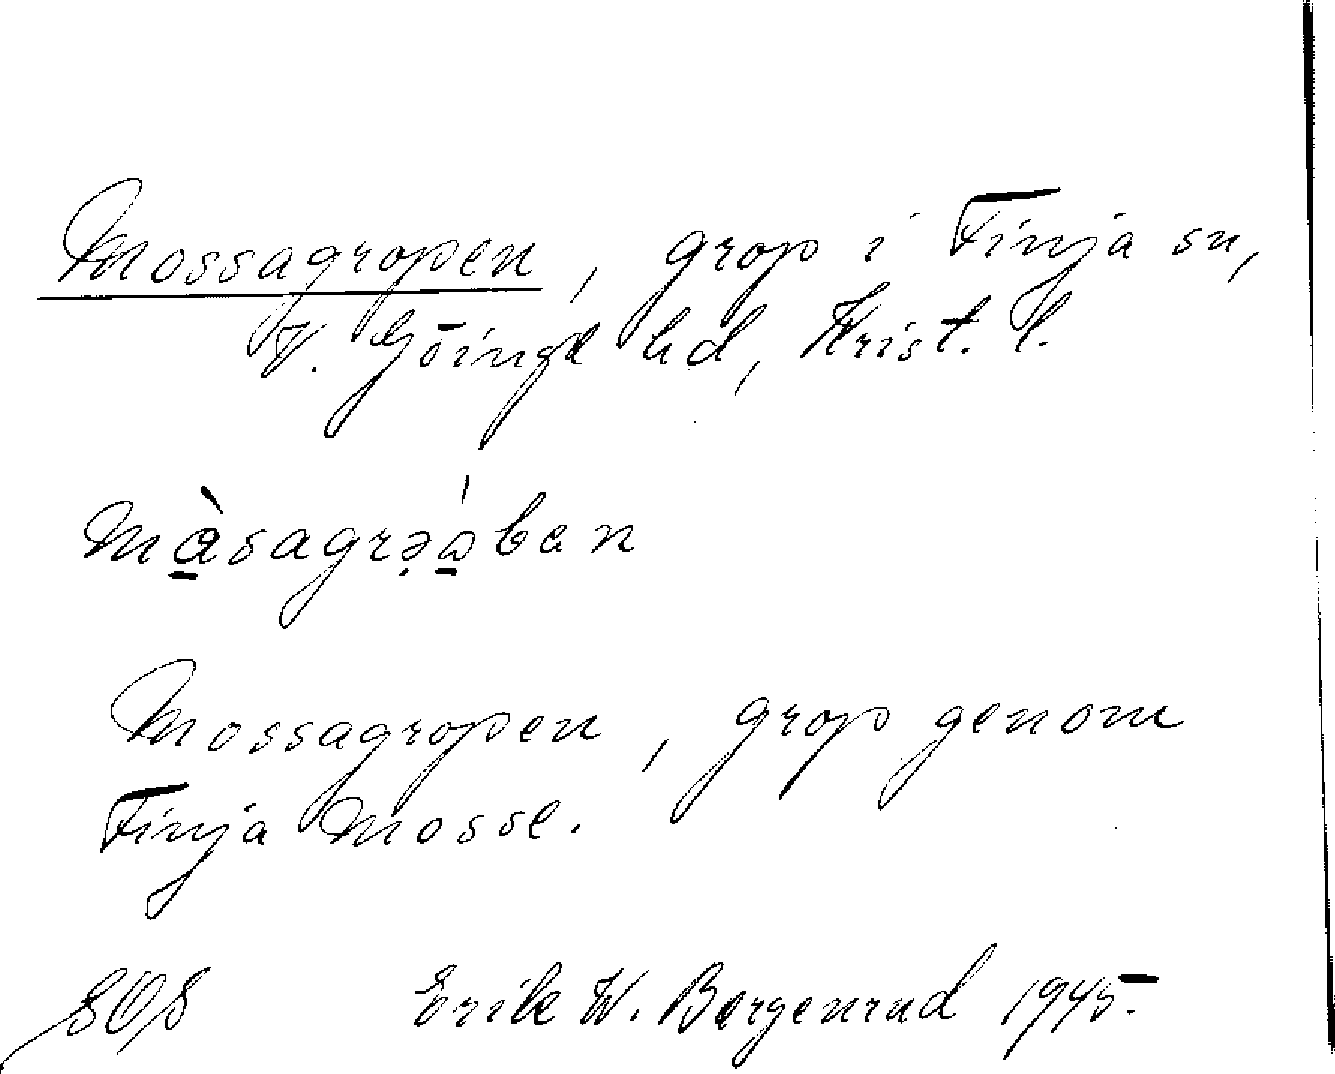 Mossagropen, grop i Finja sn,
V. Göinge hd, Krist. l.
màsagrə̣òben
Mossagropen, grop genom
Finja Mosse.
SOS Erik W. Bergenrud 1945.